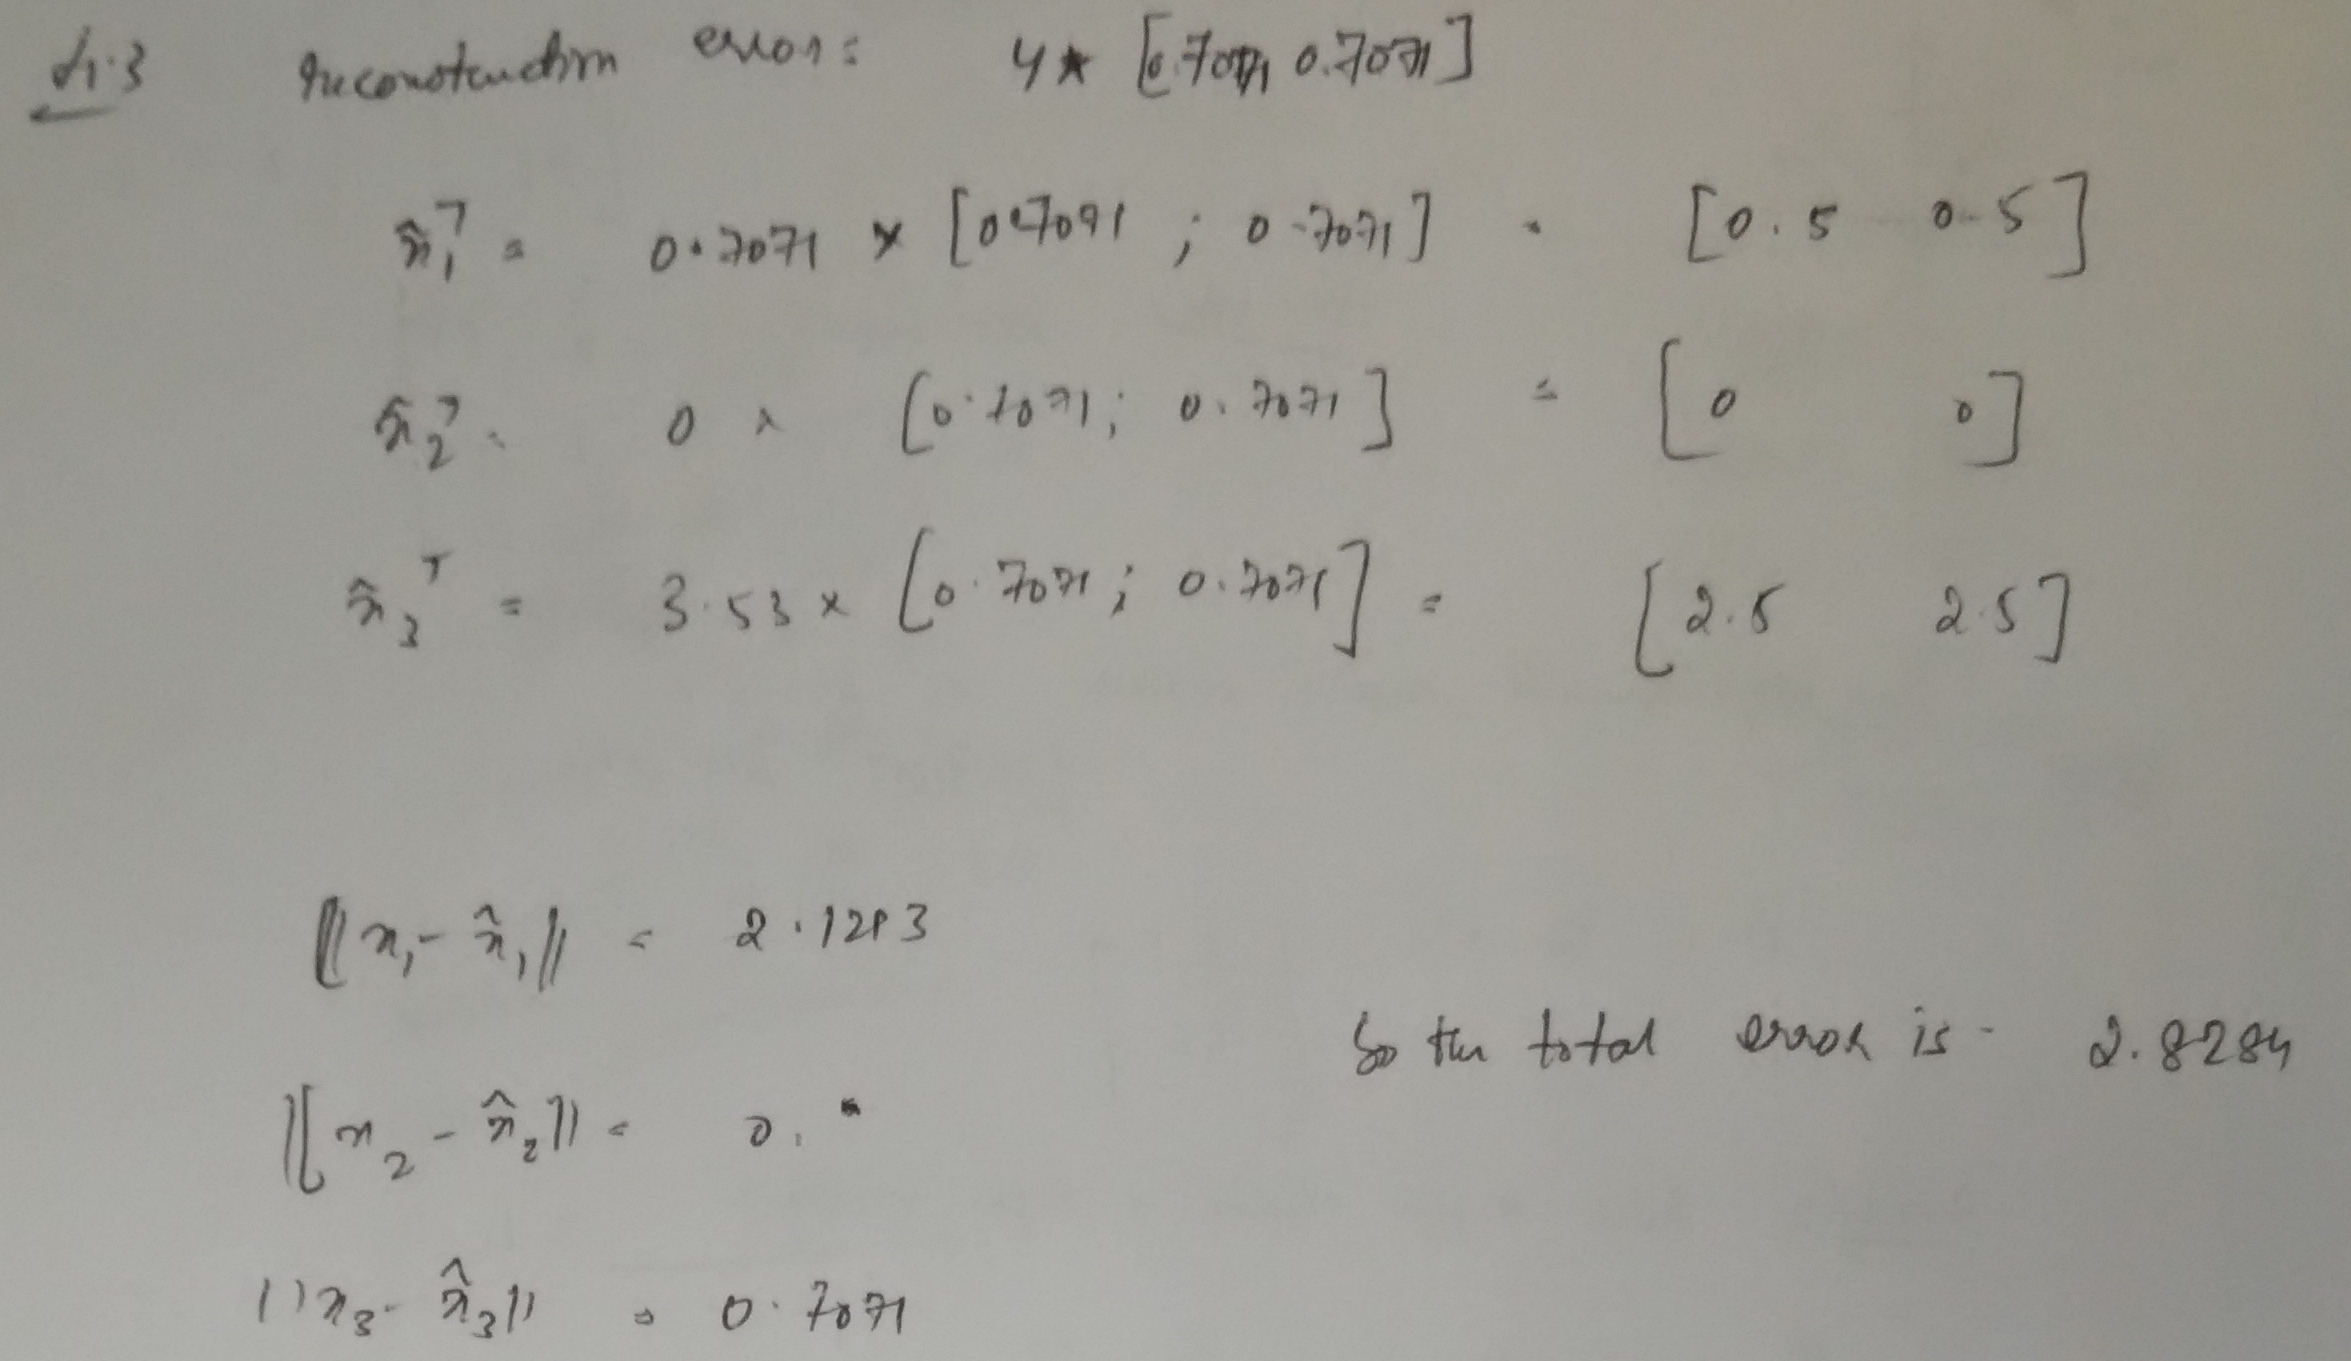 1.3 reconstruction error: 4* [0.7071 0.7071]
x̂₁ᵀ = 0.7071 × [0.7071 ; 0.7071] = [0.5 0.5]
x̂₂ᵀ = 0 × [0.7071; 0.7071] = [0 0]
x̂₃ᵀ = 3.53 × [0.7071; 0.7071] = [2.5 2.5]
||x₁ - x̂₁|| = 2.1213
So the total error is - 2.8284
||x₂ - x̂₂|| = 0.
||x₃ - x̂₃|| = 0.7071